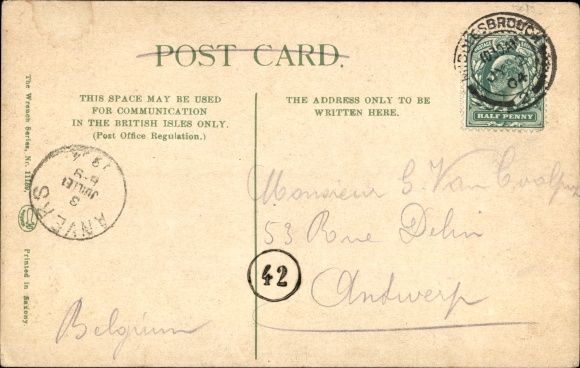 POST CARD.
THIS SPACE MAY BE USED
FOR COMMUNICATION
IN THE BRITISH ISLES ONLY.
(Post Office Regulation.)
THE ADDRESS ONLY TO BE
WRITTEN HERE.
HALF PENNY
MIDDLESBROUGH
04
The Wrench Series, Nr.
Printed in Saxony
ANVERS
3
JUILLET
Monsieur G. Van
53 Rue
42
Antwerp
Belgium